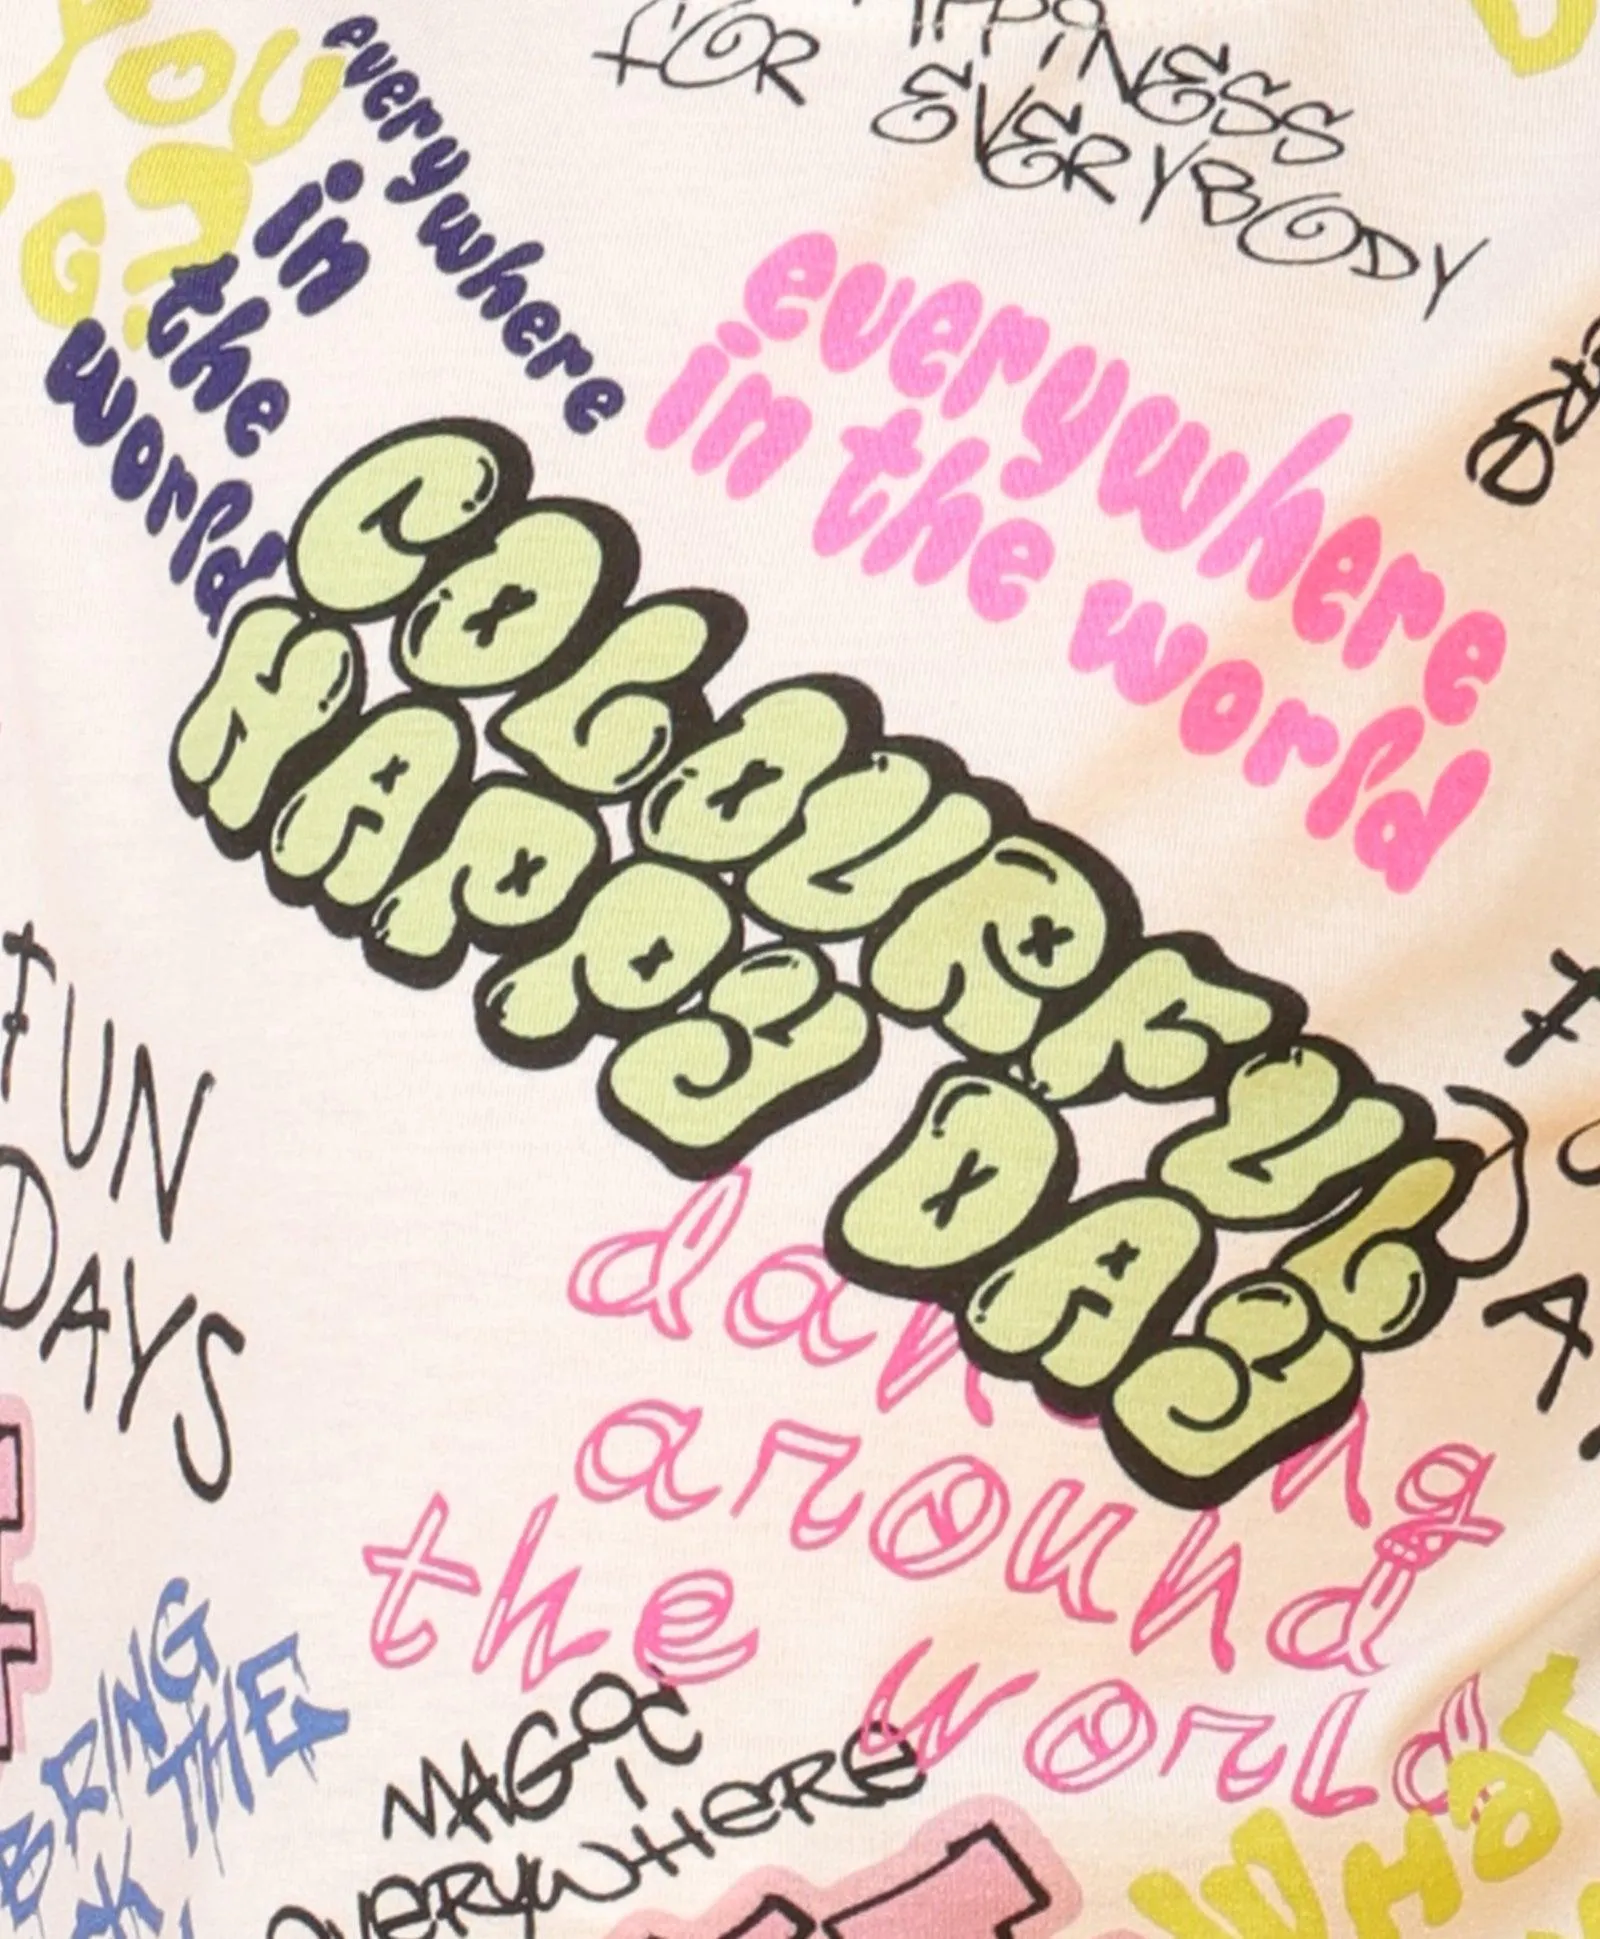 YOU
everywhere
in
the
world
HAPPINESS
FOR EVERYBODY
everywhere
in the world
COLOURFUL
HAPPY DAYS
FUN
DAYS
dancing
around
the world
BRING
THE
MAGIC
EVERYWHERE
WHAT